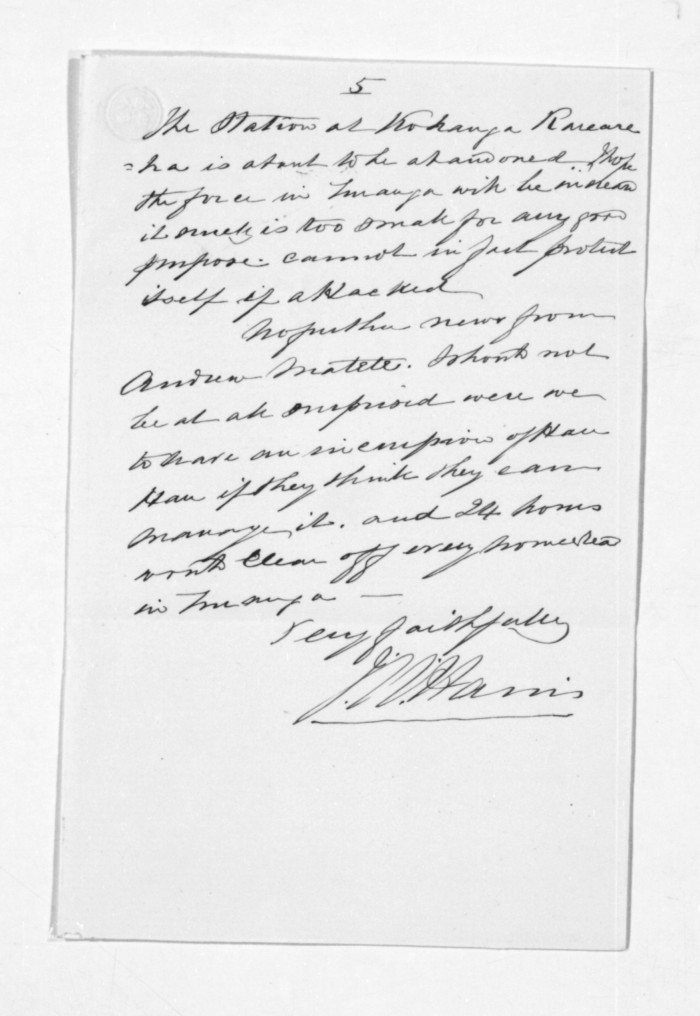 5
The Station at Kokanga Raeare
=ka is about to be abandoned. I hope
the force in Turanga will be increased
it surely is too small for any good
purpose. cannot in fact protect
itself if attacked
No further news from
Andrew Matete. I shoud not
be at all surprised were we
to have an incursion of Hau
Hau if they think they can
manage it. and 24 hours
would clear off every homestead
in Turanga —
Very faithfully
J. W. Harris